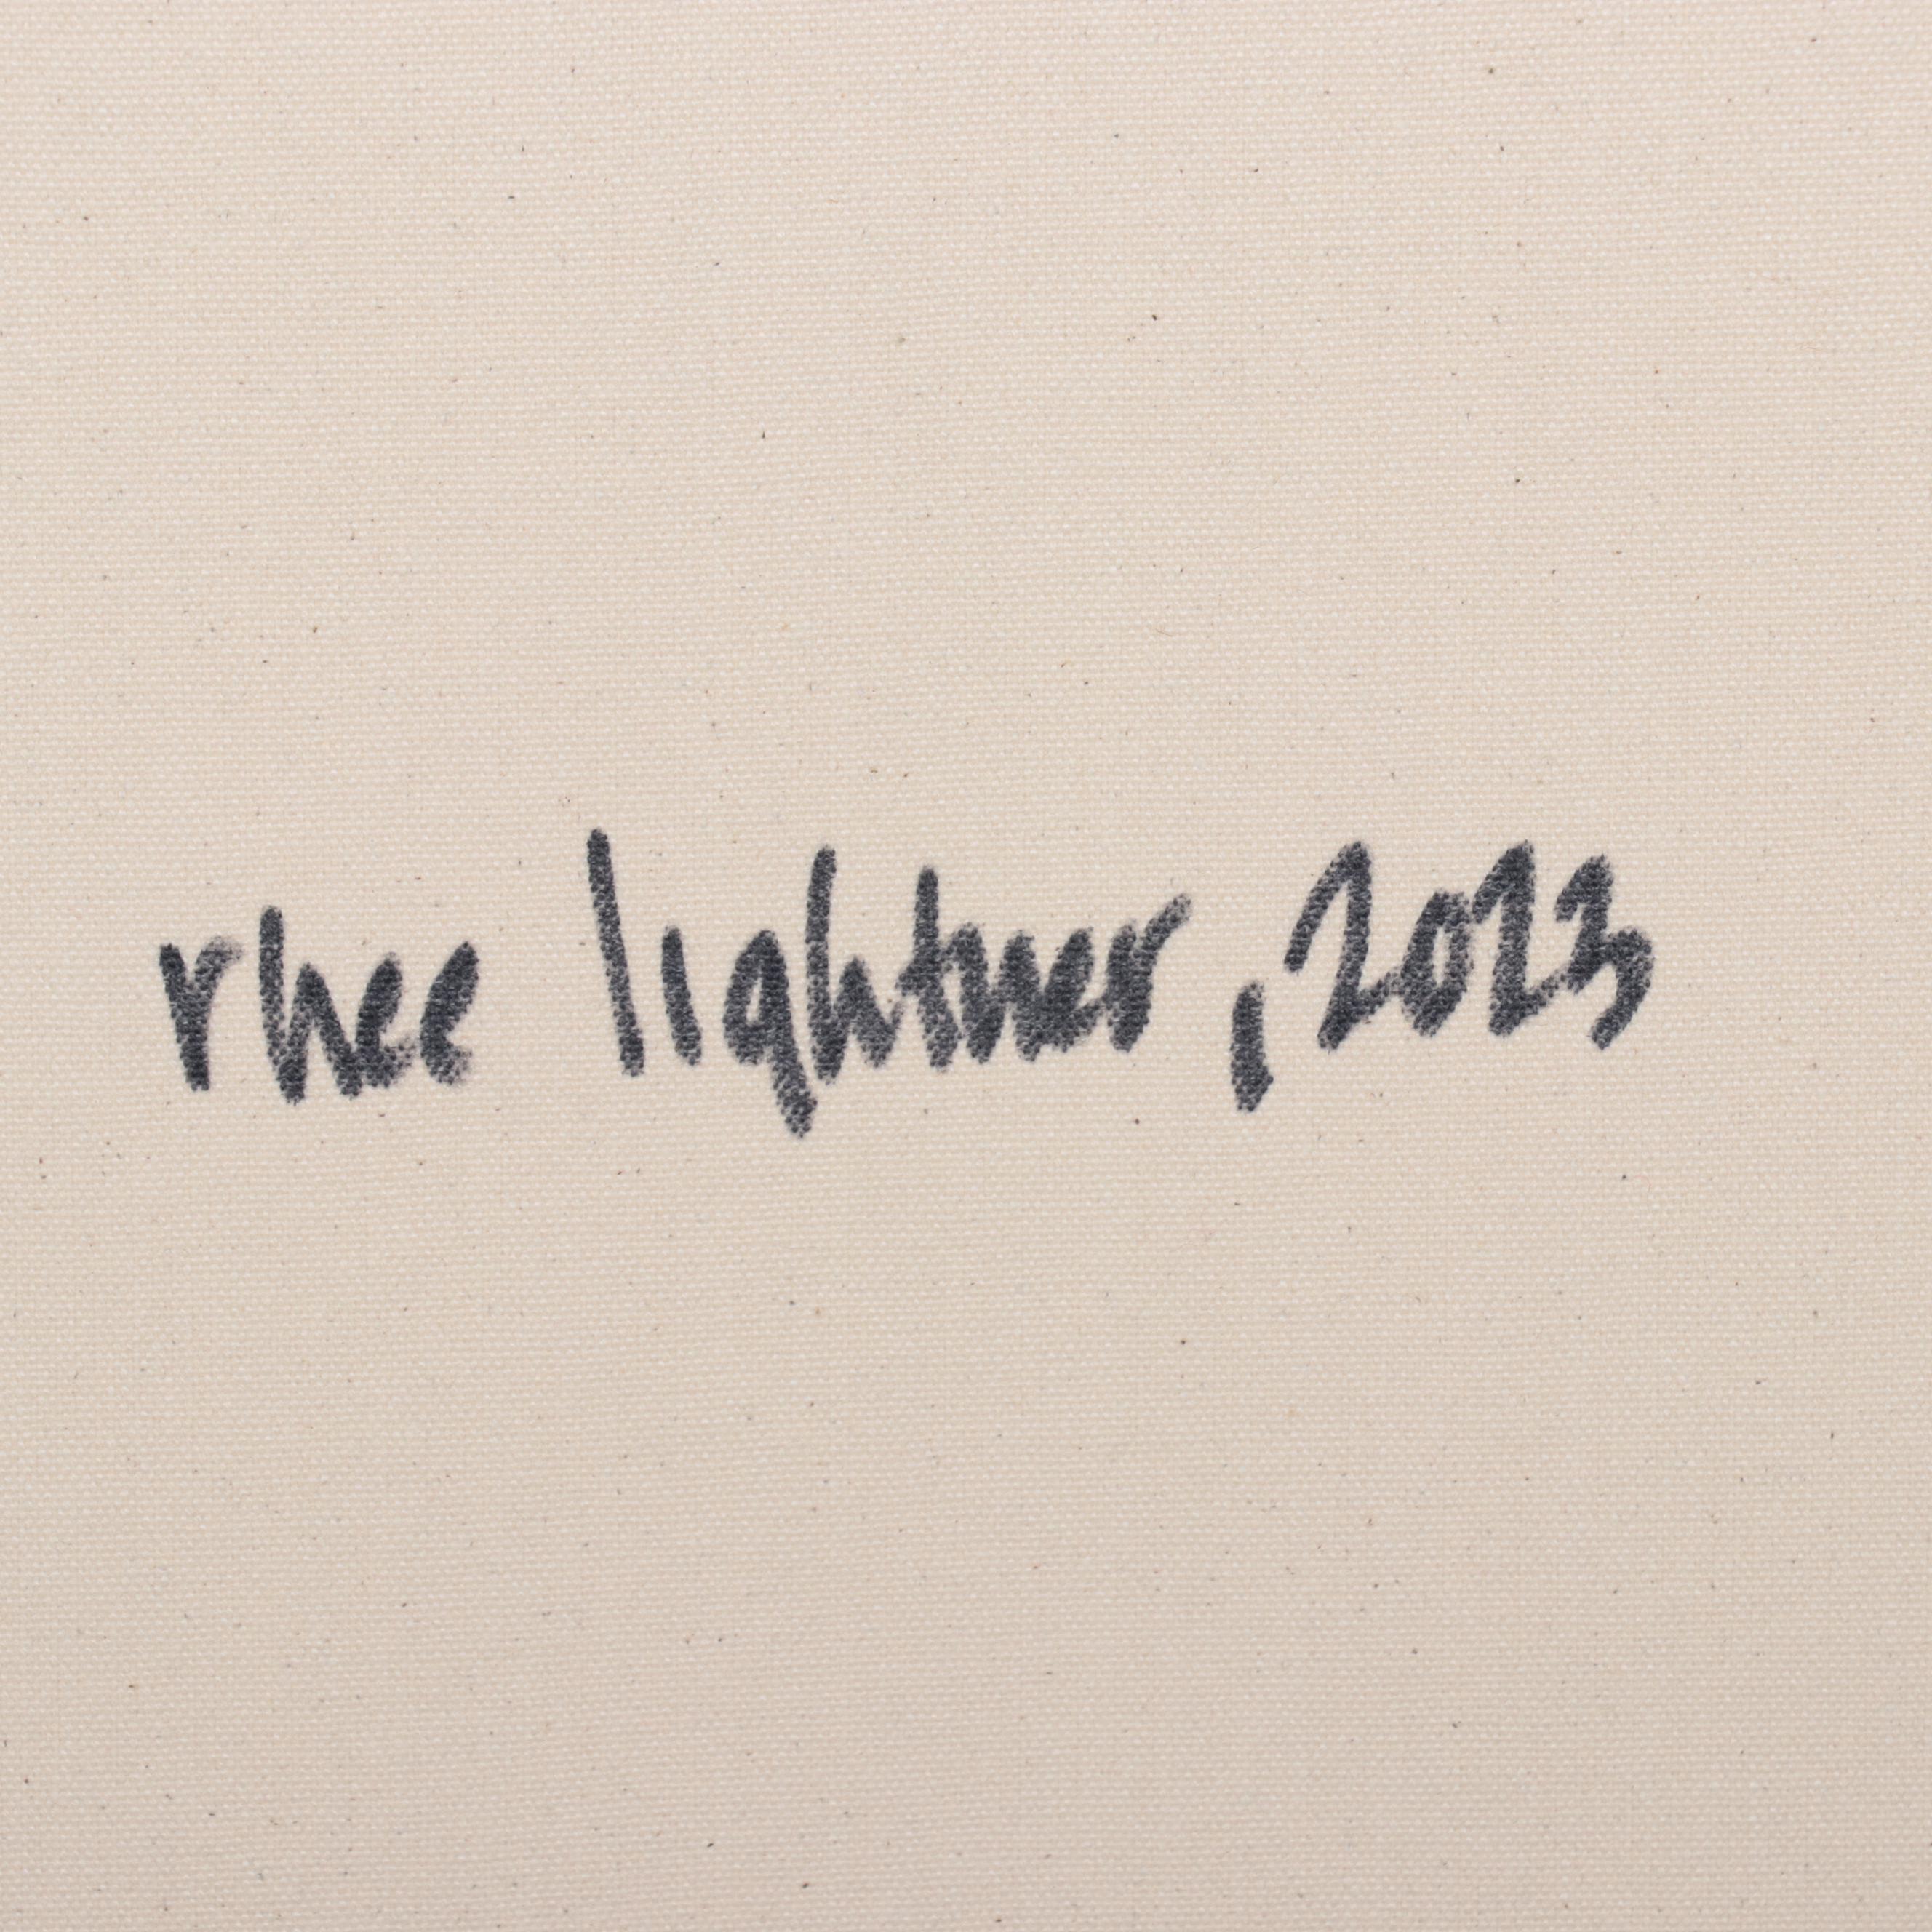 rhee lightner, 2023